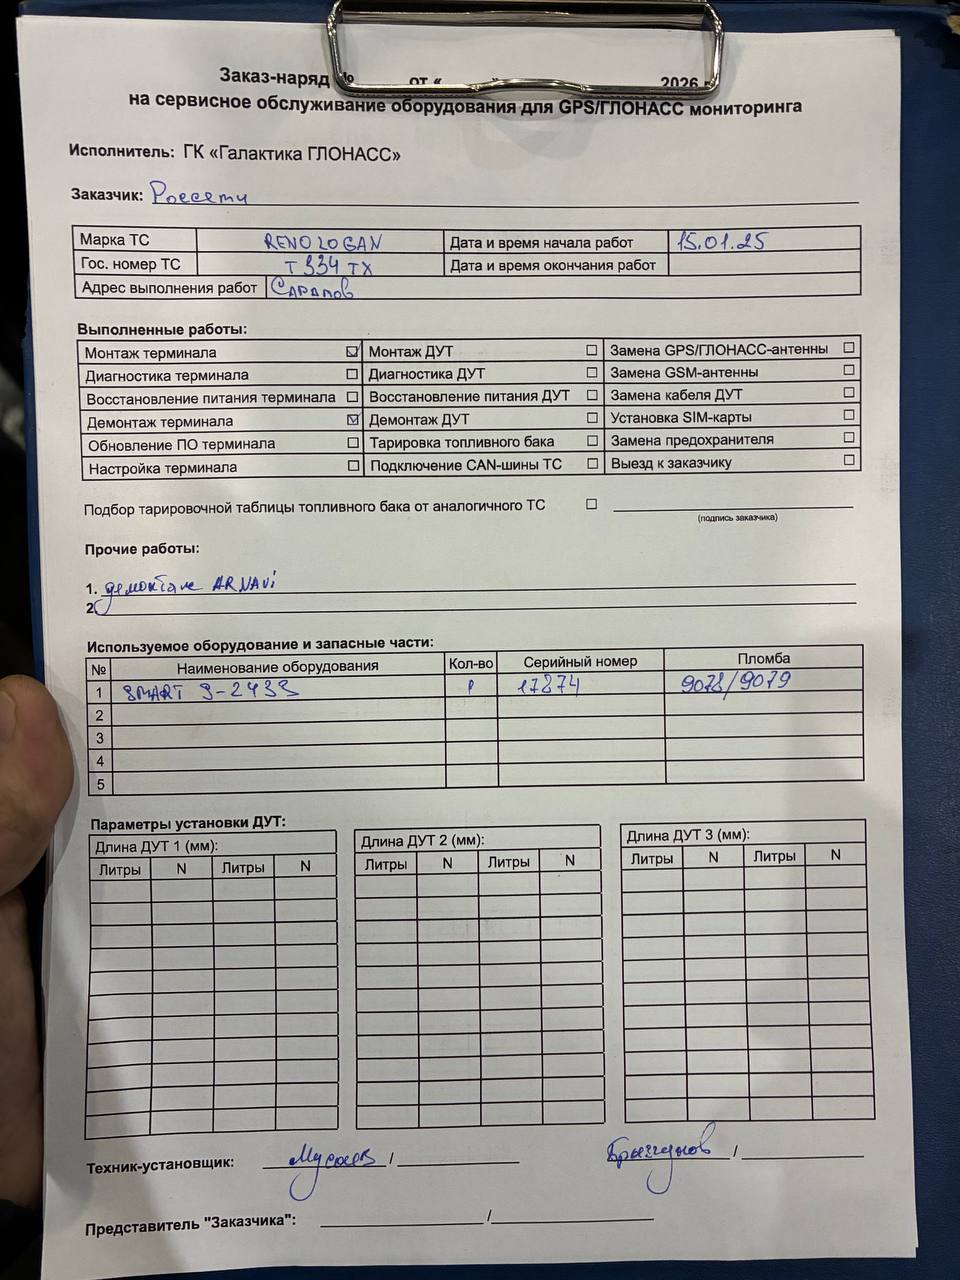 Заказ-наряд № от « » 2026
на сервисное обслуживание оборудования для GPS/ГЛОНАСС мониторинга
Исполнитель: ГК «Галактика ГЛОНАСС»
Заказчик: Россети
Марка ТС RENO LOGAN Дата и время начала работ 15.01.25
Гос. номер ТС Т 334 ТХ Дата и время окончания работ
Адрес выполнения работ
Выполненные работы:
Монтаж терминала ☑ Монтаж ДУТ ☐ Замена GPS/ГЛОНАСС-антенны ☐
Диагностика терминала ☐ Диагностика ДУТ ☐ Замена GSM-антенны ☐
Восстановление питания терминала ☐ Восстановление питания ДУТ ☐ Замена кабеля ДУТ ☐
Демонтаж терминала ☑ Демонтаж ДУТ ☐ Установка SIM-карты ☐
Обновление ПО терминала ☐ Тарировка топливного бака ☐ Замена предохранителя ☐
Настройка терминала ☐ Подключение CAN-шины ТС ☐ Выезд к заказчику ☐
Подбор тарировочной таблицы топливного бака от аналогичного ТС ☐
(подпись заказчика)
Прочие работы:
1. демонтаж ARNAVi
2
Используемое оборудование и запасные части:
№ Наименование оборудования Кол-во Серийный номер Пломба
1 SMART S-2433 17874 9078/9079
2
3
4
5
Параметры установки ДУТ:
Длина ДУТ 1 (мм): Длина ДУТ 2 (мм): Длина ДУТ 3 (мм):
Литры N Литры N Литры N Литры N Литры N Литры N
Техник-установщик: Мусаев / /
Представитель "Заказчика": /